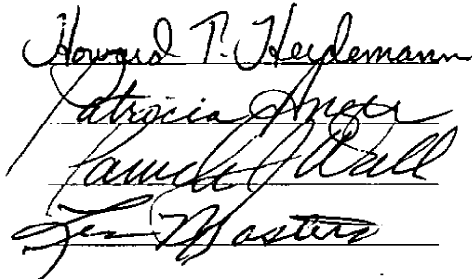 Howard T. Heydemann
Patricia Anger
Pamela J Wall
Masters